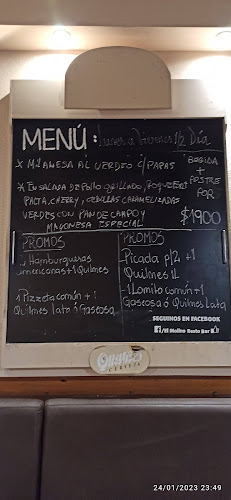 MENÚ: Lunes a Viernes 1/2 Día
x MILANESA AL VERDEO C/PAPAS
BEBIDA
+
POSTRE
POR
$1900
x ENSALADA DE POLLO GRILLADO, ROQUEFORT
PALTA, CHERRY, CEBOLLAS CARAMELIZADAS
VERDES CON PAN DE CAMPO Y
MAYONESA ESPECIAL
PROMOS
Hamburguesas
americanas+1 Quilmes
1 Pizzeta común+1
Quilmes lata ó Gaseosa
PROMOS
Picada p/2 +1
Quilmes 1L
1 Lomito común+1
Gaseosa ó Quilmes Lata
SEGUINOS EN FACEBOOK
/El Molino Resto Bar
Quilmes
CERVEZA
24/01/2023 23:49